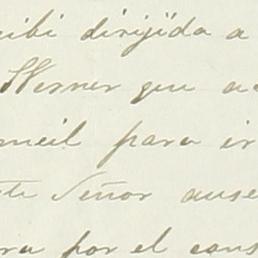 cibi dirijida a
Werner que a
meil para ir
te Señor ause
ra por el cons